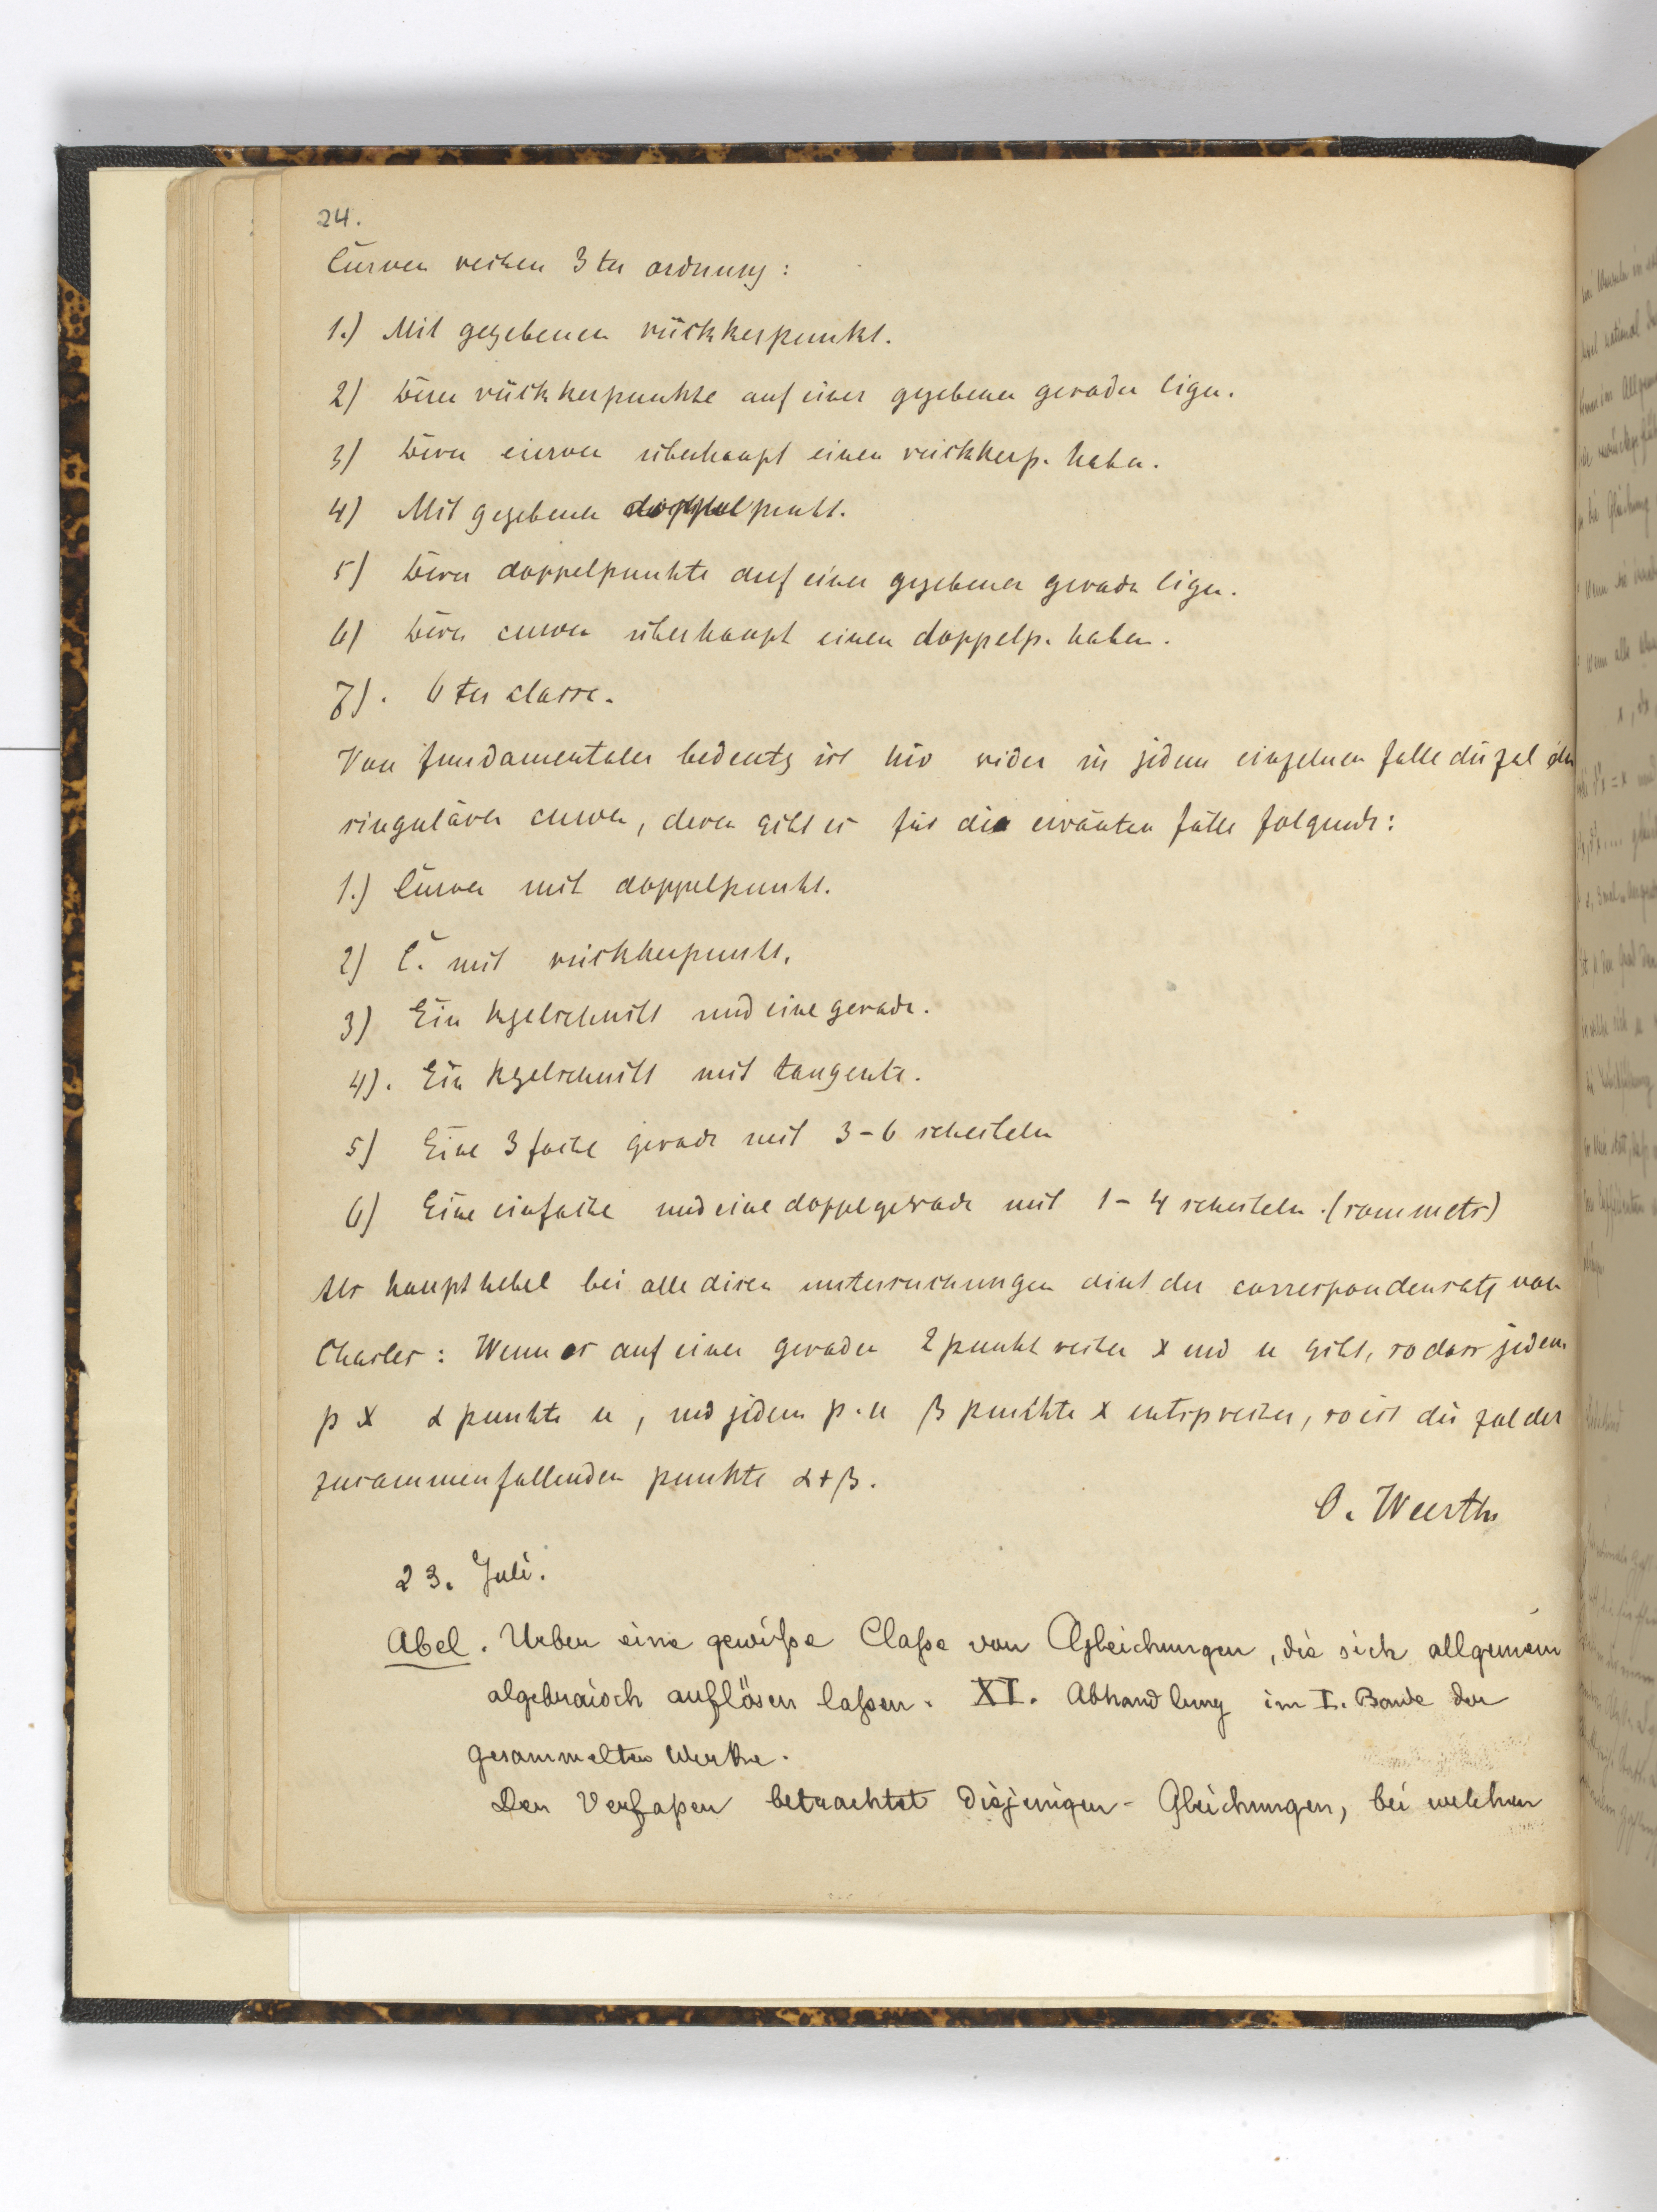 24.
Curven reihen 3ter ordnung:
1.) Mit gegebenen rückkerpunkt.
2) Deren rückkerpunkte auf einer gegebenen geraden ligen.
3) Deren curven überhaupt einen rückkerp. haben.
4) Mit gegebenen doppelpunkt.
5) Deren doppelpunkte auf einer gegebenen geraden ligen.
6) Deren curven überhaupt einen doppelp. haben.
7). 6ter classe.
Von fundamentaler bedeutg ist hir wider in jedem einzelnen falle die zal der
singulären curven, deren gibt es für die erwänten fälle folgende:
1.) Curven mit doppelpunkt.
2) C. mit rückkerpunkt.
3) Ein kgelschnitt und eine gerade.
4). Ein kgelschnitt mit tangente.
5) Eine 3fache gerade mit 3-6 scheiteln
6) Eine einfache und eine doppelgerade mit 1-4 scheiteln.
Als haupthebel bei alle disen untersuchungen dint der correspondensatz von
Chasles: Wenn es auf einer geraden 2 punktreihen x und u gibt, so dass jedem
p x α punkte u, und jedem p. u β punkte x entsprechen, so ist die zal der
zusammenfallenden punkte α+β.
O. Weerth
23. Juli.
Abel. Ueber eine gewiße Claße von Gleichungen, die sich allgemein
algebraisch auflösen laßen. XI. Abhandlung im I. Bande der
gesammelten Werke.
Der Verfaßer betrachtet diejenigen Gleichungen, bei welchen